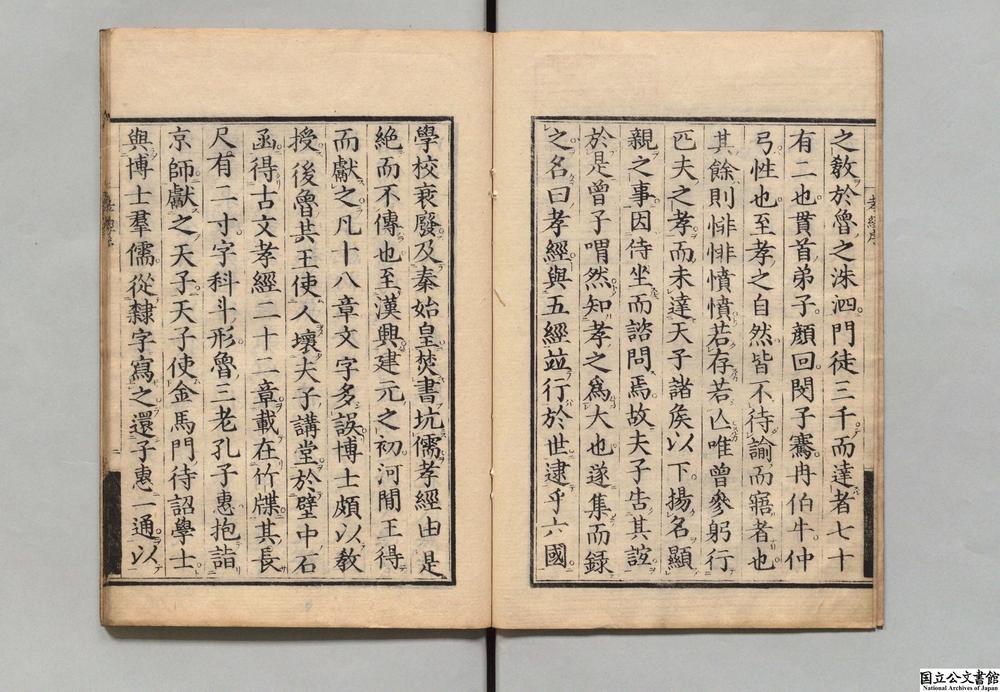 之敎於魯之洙泗門徒三千而達者七十
有二也貫首弟子顏回閔子騫冉伯牛仲
弓性也至孝之自然皆不待諭而寤者也
其餘則悱悱憤憤若存若亾唯曾參躬行
匹夫之孝而未達天子諸矦以下揚名顯
親之事因侍坐而諮問焉故夫子告其誼
於是曾子喟然知孝之爲大也遂集而録
之名曰孝經與五經竝行於世逮乎六國
學校衰廢及秦始皇焚書坑儒孝經由是
絶而不傳也至漢興建元之初河閒王得
而獻之凡十八章文字多誤博士頗以敎
授後魯共王使人壞夫子講堂於壁中石
函得古文孝經二十二章載在竹牒其長
尺有二寸字科斗形魯三老孔子惠抱詣
京師獻之天子天子使金馬門待詔學士
與博士羣儒從隸字寫之還子惠一通以
孝經序
国立公文書館
National Archives of Japan